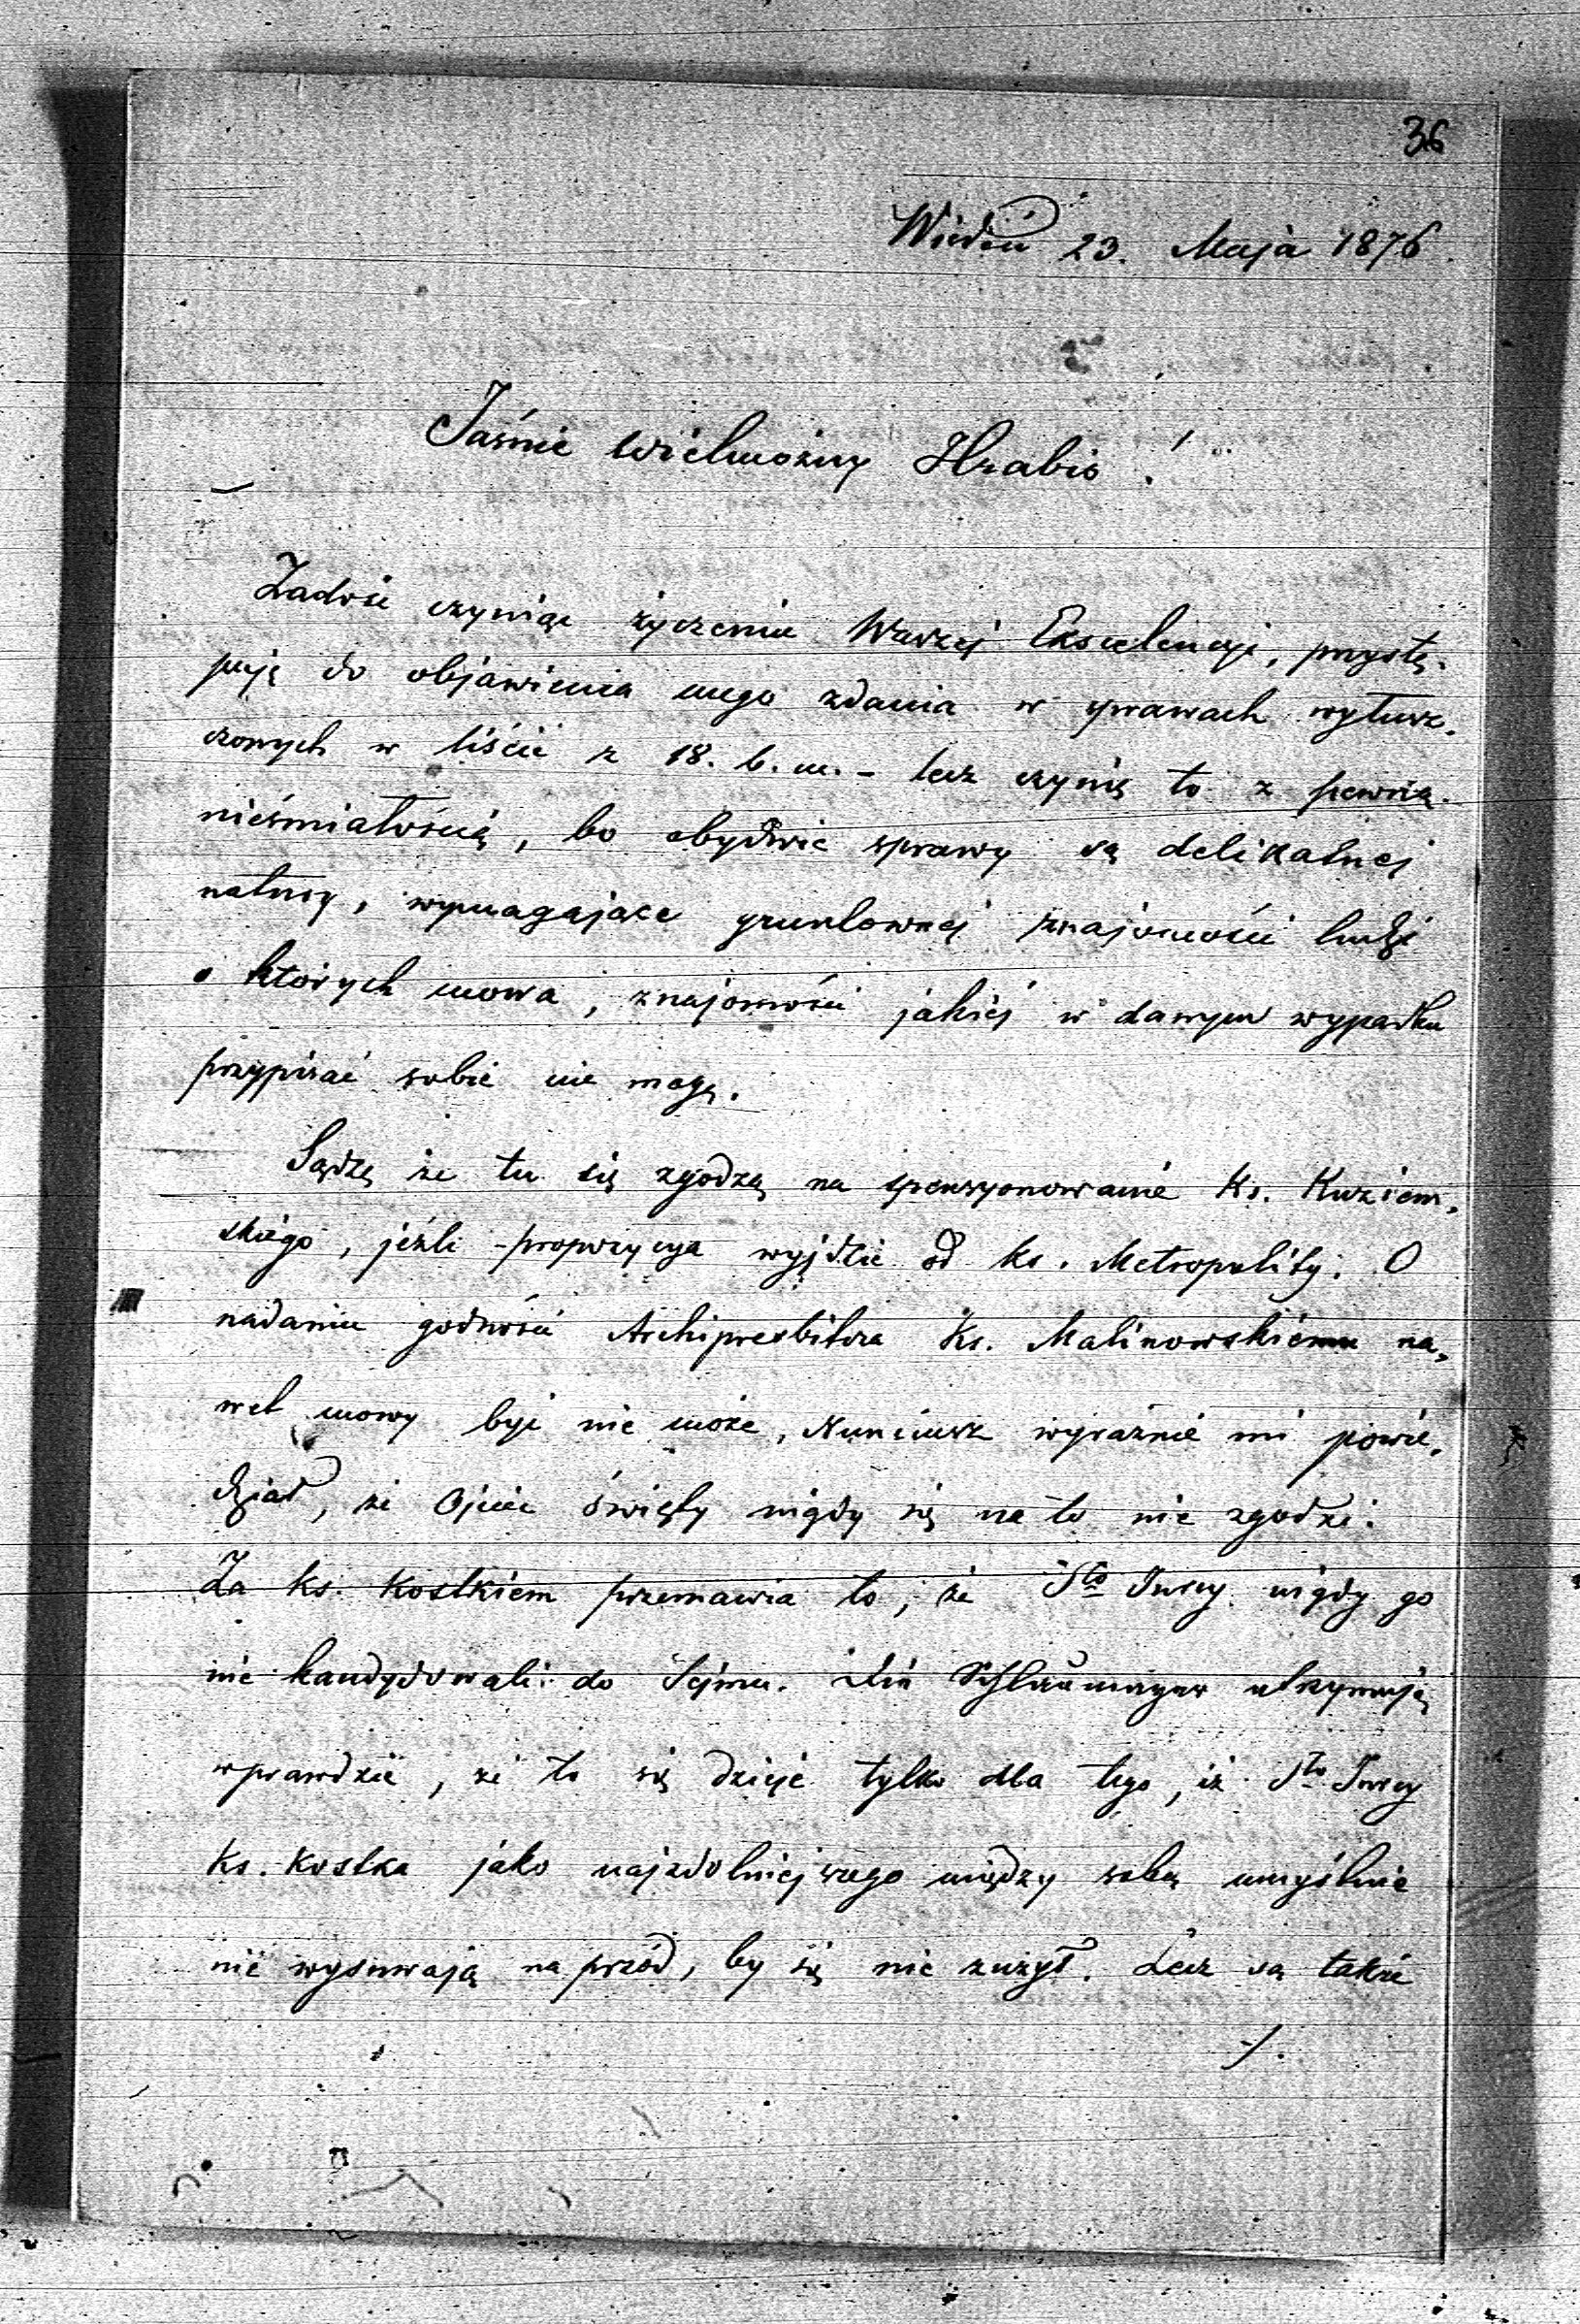 36
Wiedeń 23. Maja 1876.
Jaśnie Wielmożny Hrabio!
Zadość czyniąc życzeniu Waszej Ekscelencyi, przystę-
puję do objawienia mego zdania w sprawach wyłusz-
czonych w liście z 18. b. m. – lecz czynię to z pewną
nieśmiałością, bo obydwie sprawy są delikatnej
natury, wymagające gruntownej znajomości ludzi
o których mowa, znajomości jakiej w danym wypadku
przypisać sobie nie mogę.
Sądzę że tu się zgodzą na spensyonowanie ks. Kuziem-
skiego, jeźli propozycya wyjdzie od ks. Metropolity. O
nadaniu godności Archipresbitera Ks. Malinowskiemu na-
wet mowy być nie może, Nuncyusz wyraźnie mi powie-
dział, że Ojciec święty nigdy się na to nie zgodzi.
Za ks. Kostkiem przemawia to, że Sto Jurcy nigdy go
nie kandydowali do Sejmu. utrzymują
wprawdzie, że to się dzieje tylko dla tego, iż Sto Jurcy
Ks. Kostka jako najzdolniejszego między sobą umyślnie
nie wysuwają na przód, by się nie zużył. Lecz są także
./.